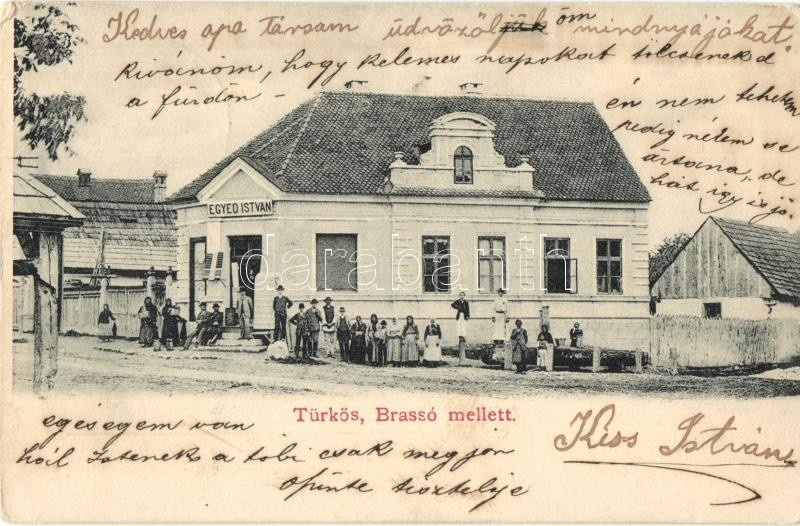 Kedves apa Társam üdvözöljük öm mindnyájákat
Kivánom, hogy kelemes napokat tölcsenek d
a fürdön –
én nem tehetem
pedig nélem se
ártana, de
hát így is jó.
EGYED ISTVÁN
darabanth
Türkös, Brassó mellett.
egesegem van
hál Istenek a tobi csak meg jön
Kiss István
tisztelője